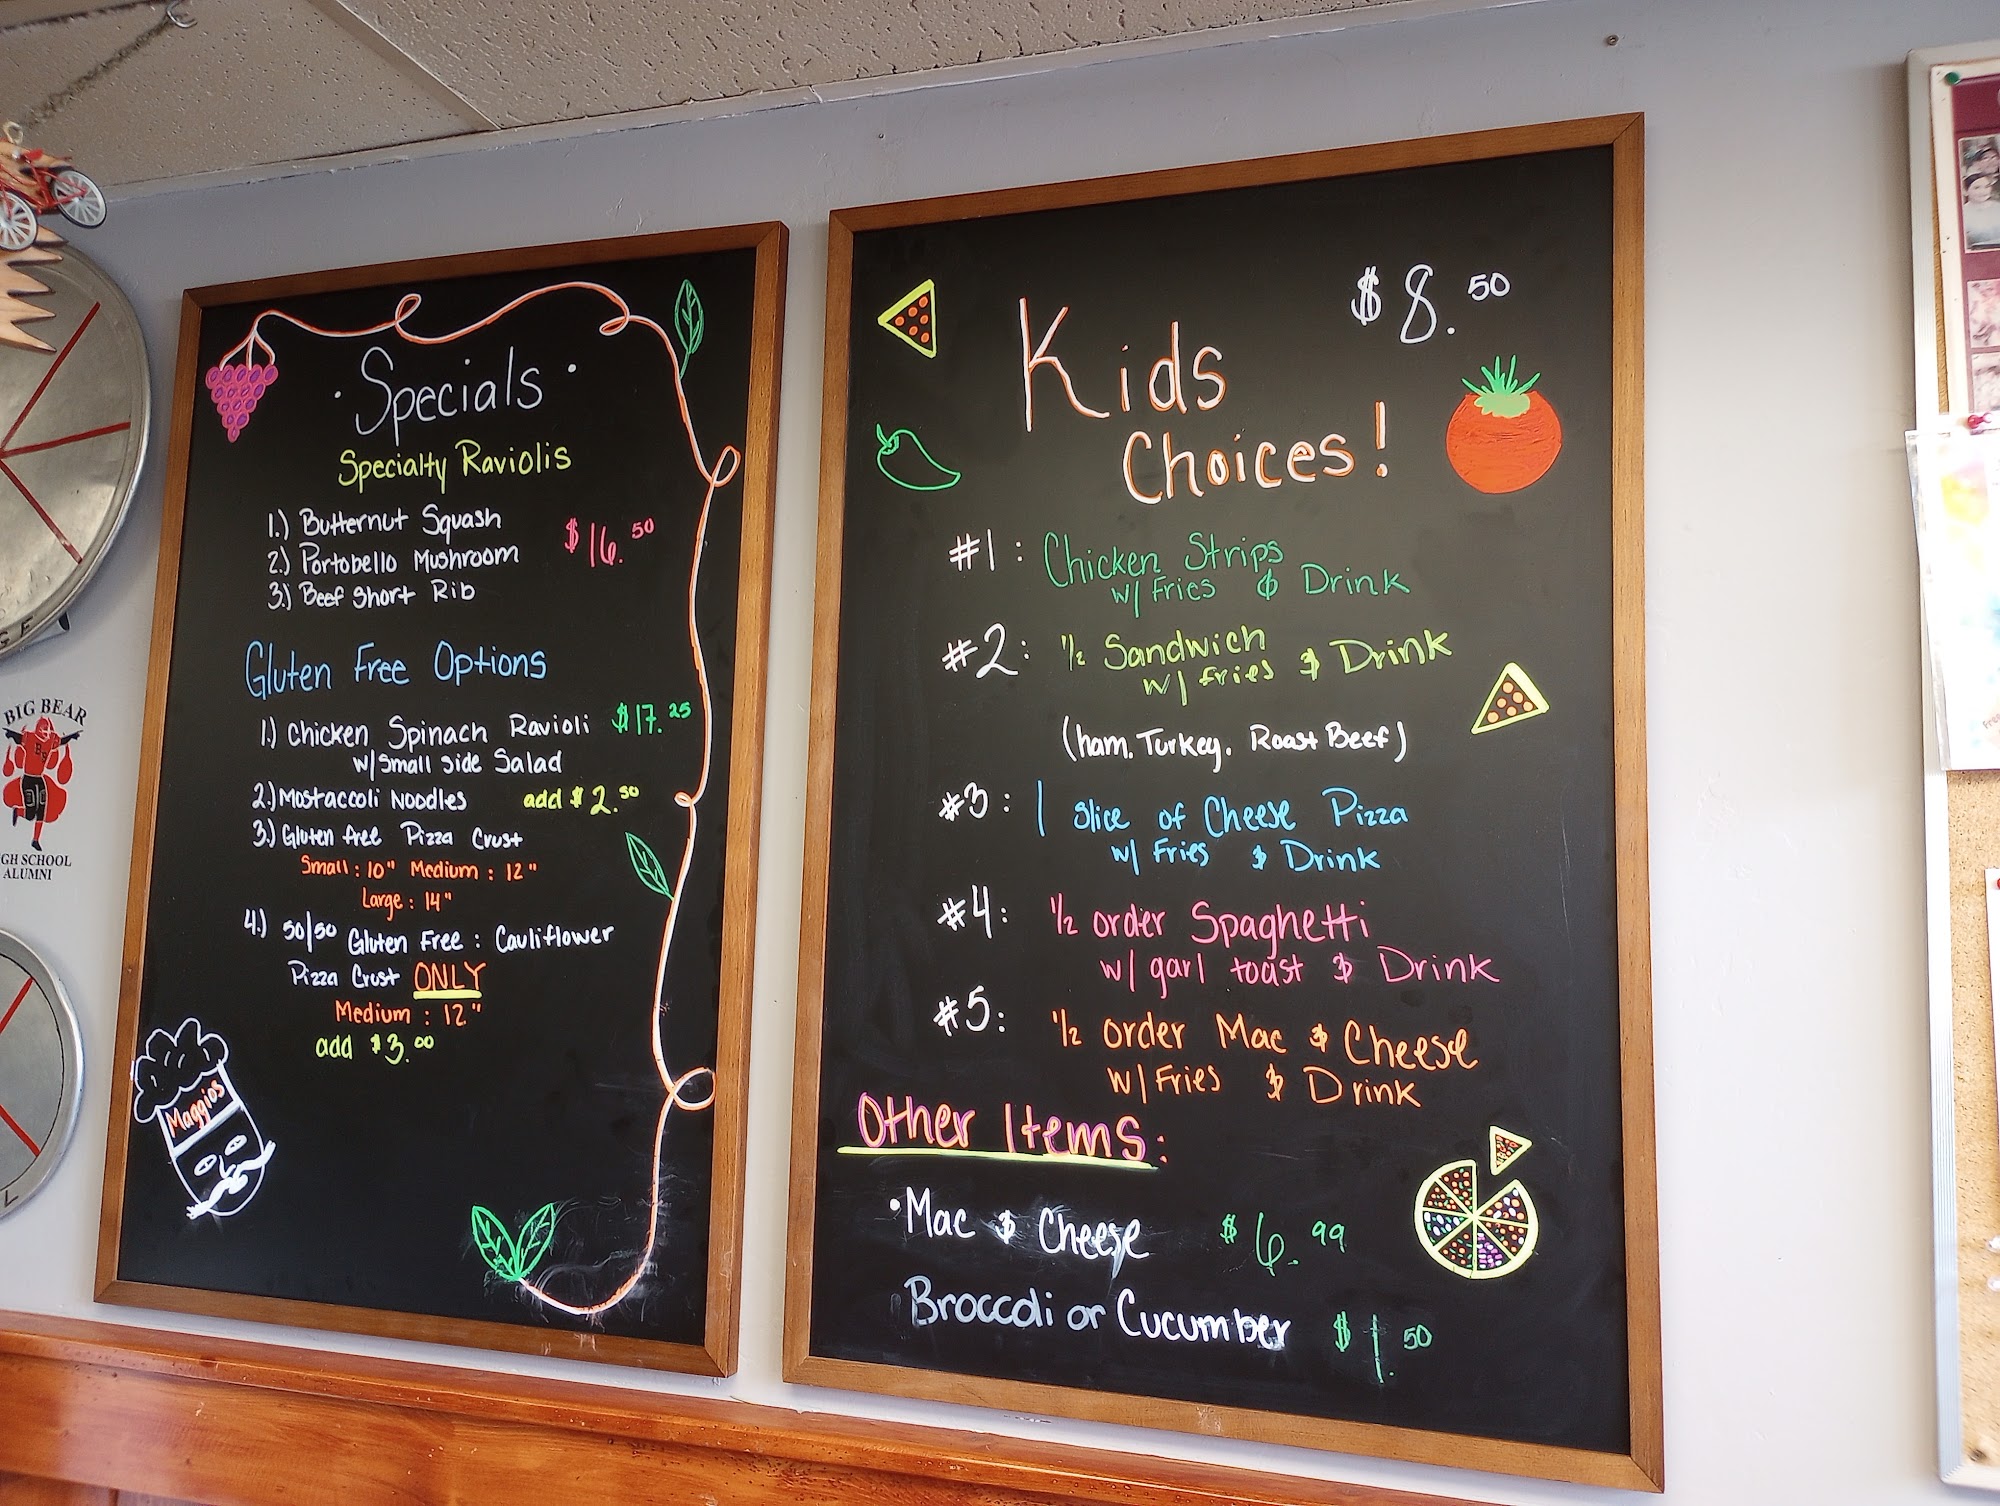 · Specials ·
Specialty Raviolis
1.) Butternut Squash
2.) Portobello Mushroom
3.) Beef Short Rib
$16.50
Gluten Free Options
1.) Chicken Spinach Ravioli $17.25
w/ Small side Salad
2.) Mostaccoli Noodles add $2.50
3.) Gluten free Pizza Crust
Small : 10" Medium : 12"
Large : 14"
4.) 50/50 Gluten Free : Cauliflower
Pizza Crust ONLY
Medium : 12"
add $3.00
Maggios
$8.50
Kids
Choices!
#1: Chicken Strips
w/ Fries & Drink
#2: 1/2 Sandwich
w/ Fries & Drink
(ham, Turkey, Roast Beef)
#3: 1 slice of Cheese Pizza
w/ Fries & Drink
#4: 1/2 order Spaghetti
w/ garl toast & Drink
#5: 1/2 order Mac & Cheese
w/ Fries & Drink
Other Items:
• Mac & Cheese $6.99
Broccoli or Cucumber $1.50
BIG BEAR
GH SCHOOL
ALUMNI